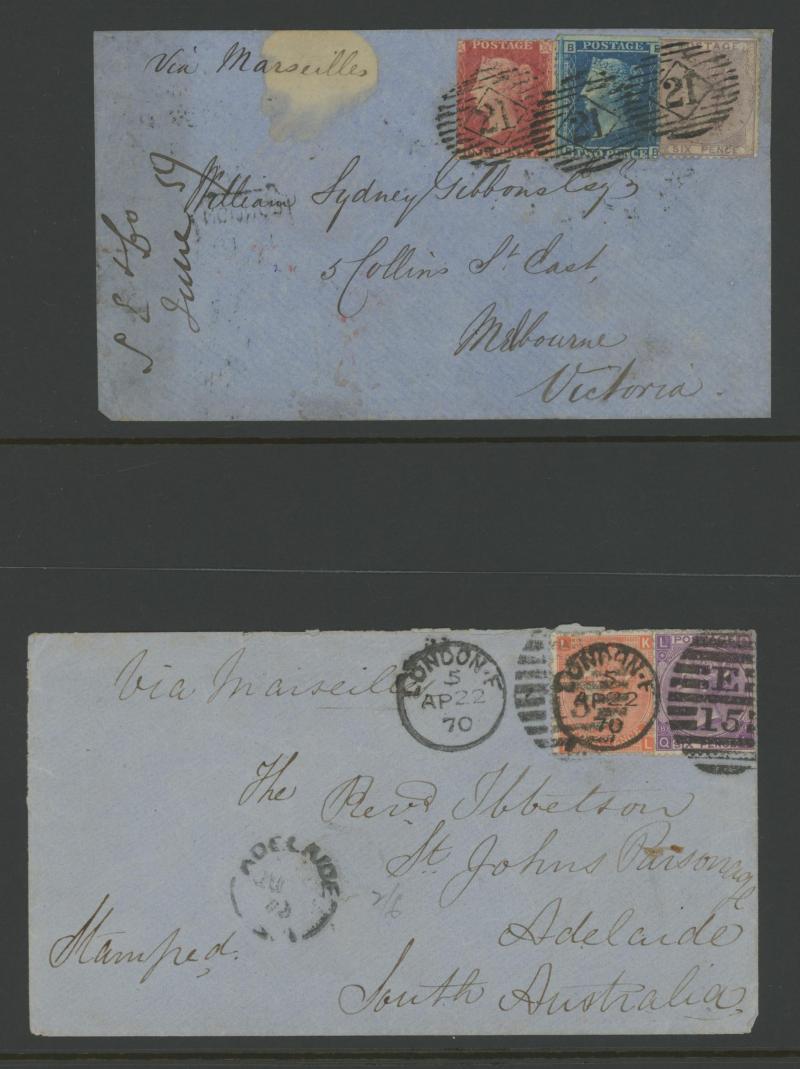 Via Marseilles
POSTAGE
21
B POSTAGE B
21
TWO PENCE B
21
SIX PENCE
William Sydney Gibbons Esqr
5 Collins St East,
Melbourne
Victoria.
June 59
Via Marseilles
LONDON·F
5
AP 22
70
K
LONDON·F
5
AP 22
70
L
L POSTAGE
E
15
Q SIX PENCE
The Revd Ibbetson
St Johns Parsonage
Adelaide
South Australia.
ADELAIDE
Stamped.